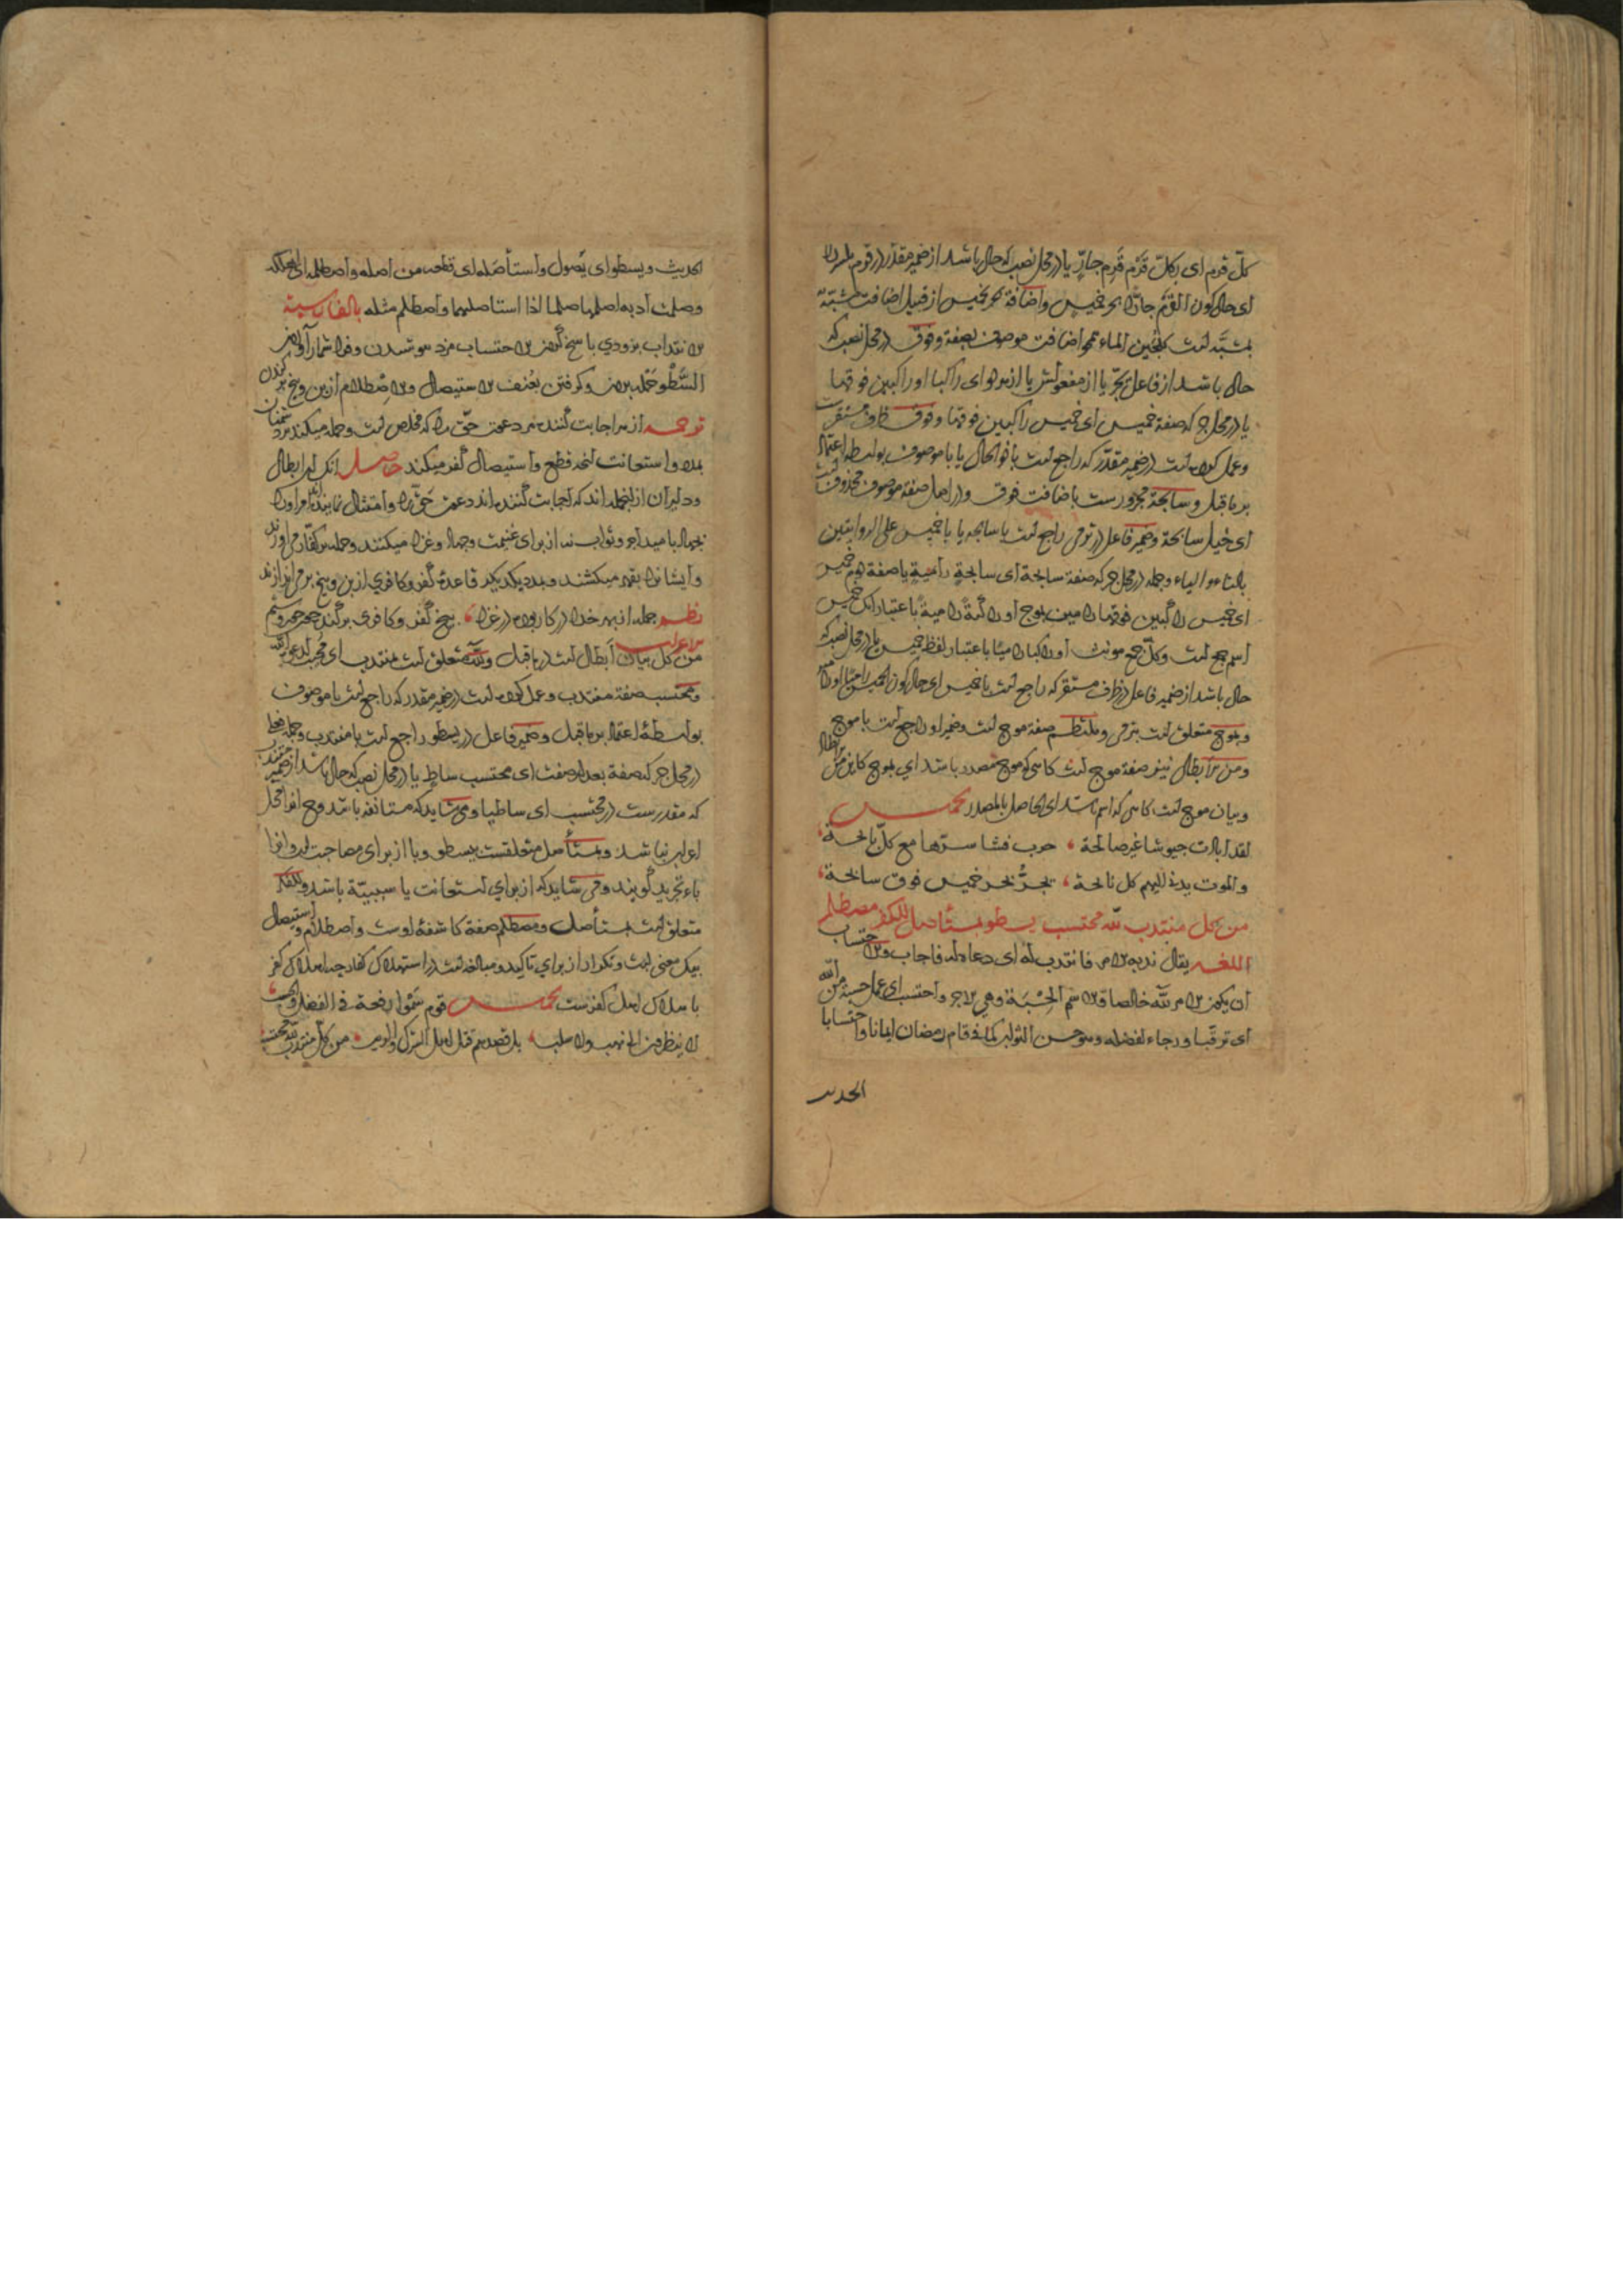 کلّ قرم ای بکلّ قَرْم قَرِم جارٍّ یا در محل نصب که حال باشد از ضمیر مقدّر در قرم
ای حال کون القَرْم جارًّا بحر خمیس و اضافة بحر بخمیس از قبیل اضافت مشبّهٌ
بمشبّه است کلجین الماء نحو اضافت موصوف بصفة و فوق در محل نصب که
حال باشد از فاعل یجرّ یا از مفعولش یا از هر دو ای راکبا او راکبین فوقها
یا در محل جر که صفة خمیس ای خمیس راکبین فوقها و فوق ظرف مستقرست
و عمل کرده است در ضمیر مقدّر که راجع است با ذو الحال یا با موصوف بواسطه اعتماد
بر ما قبل و سابحة مجرورست باضافت فوق و در اصل صفة موصوف محذوف است
ای خیل سابحة و ضمیر فاعل در ترمی راجع است با سابحه یا با خمیس علی الروایتین
بالتاء و الیاء و جمله در محل جر که صفة سابحة ای سابحةٍ رامیةٍ یا صفة خمیس
ای خمیس راکبین فوقها رامین بموج او راکبةً رامیةً باعتبار آنک خمیس
اسم جمع است و کلّ جمع مونث او راکبا رامیًا باعتبار لفظ خمیس یا در محل نصب که
حال باشد از ضمیر فاعل در ظرف مستقر که راجع است با خمیس ای حال کون الخمیس رامیًا او رامین
و بموج متعلق است بترمی و ملتطم صفة موج است و ضمیر او راجع است با موج
و من الابطال نیز صفة موج است گاهی که موج مصدر باشد ای بموج کاین من الابطال
و بیان موج است گاهی که اسم باشد ای الحاصل بالمصدر مخمس
لقد ابادت جیوشا غیر صالحة ، حرب فشا سرّها مع کلّ بالحة ،
و الموت یدنی الیهم کل نالحة ، یجرُّ بحر خمیس فوق سابحة ،
من کل منتدب للّه محتسب یسطو بمستأصل للکفر مصطلم
اللغه یقال ندبه الامر فانتدب له ای دعاه له فاجاب و الاحتساب
ان یکون الامر للّه خالصا و الاسم الحِسْبَة و هی الاجر و احتسب ای عمل حسبة من اللّه
ای ترقّبا و رجاء لفضله و هو حسن الثواب کما فی قام رمضان ایمانا و احتسابا
الحدیث
الحدیث و یسطو ای یَصول و استأصله ای قطعه من اصله و اصطلمه ای اهلکه
و صلمت اذنه اصلمها صلما اذا استأصلتها و اصطلم مثله بالفارسیة
الانتداب بزودی پاسخ کردن الاحتساب مزد
السَّطْو حمله بردن و گرفتن بعُنف الاستیصال و الاصطلام از بن و بیخ بر کندن
ترجمه از هر اجابت کننده مر دعوت حق را که مخلص است و حمله میکند بر دشمنان
و استعانت قطع و استیصال کفر میکند حاصل آنک این ابطال
و دلیران از اینجمله اند که اجابت کننده اند دعوت حق را و امتثال نماینده اند امر او را
بجهاد بامید اجر و ثواب نه از برای غنیمت و جهاد و غزا میکنند و حمله بر کفار می آورند
و ایشانرا بقهر میکشند و بمدد یکدیگر قاعدهٔ کفر و کافری از بن و بیخ بر می اندازند
نظم جمله از بهر خدا در کار بوده در غزا ، بیخ کفر و کافری بر کنده
الاعراب من کل بیان ابطال است در ما قبل و للّه متعلق است بمنتدب ای مجیب لدعوة اللّه
و محتسب صفة منتدب و عمل کرده است در ضمیر مقدر که راجع است با موصوف
بواسطهٔ اعتماد بر ما قبل و ضمیر فاعل در یسطو راجع است با منتدب و جمله
در محل جر که صفة بعد از صفت ای محتسب ساطٍ یا در محل نصب که حال باشد از ضمیر
که مقدرست در محتسب ای ساطیا و می شاید که مستأنفه باشد و
اعراب نباشد و بمستأصل متعلقست بیسطو و با از برای مصاحبت است و انرا
باء تجرید گویند و می شاید که از برای استعانت یا سببیّة باشد و للکفر
متعلق است بمستأصل و مصطلم صفة کاشفهٔ اوست و اصطلام و استیصال
بیک معنی است و تکرار از برای تاکید و مبالغه است در استهلاک کفار چه اهلاک کفر
باهلاک اهل کفرست مخمس قوم سَمَوا رفعة فی الفضل و الحسب
لا ینظرون الی نهب و لا سلب ، بل قصدهم قتل اهل الشرک و الریب ، من کلّ منتدب للّه محتسب